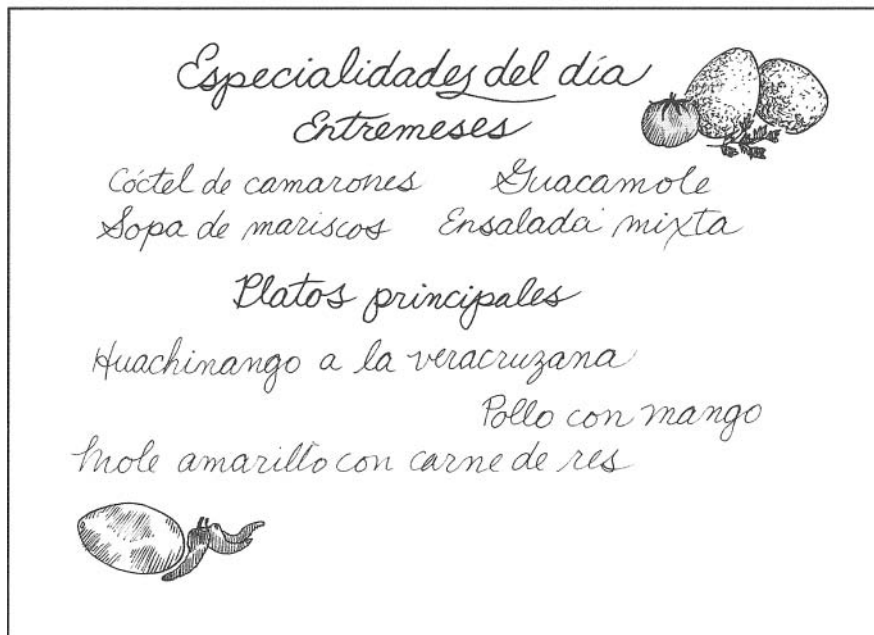 Especialidades del día
Entremeses
Cóctel de camarones Guacamole
Sopa de mariscos Ensalada mixta
Platos principales
Huachinango a la veracruzana
Pollo con mango
Mole amarillo con carne de res